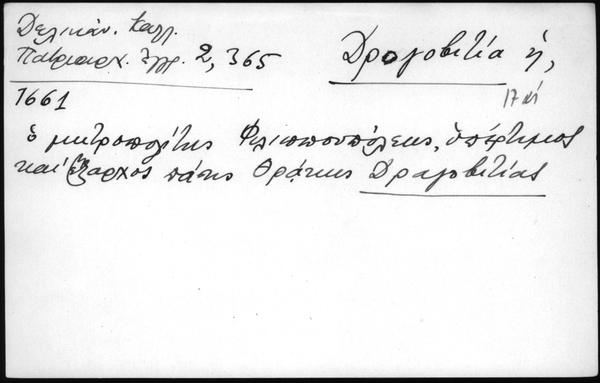 Δελικάν. Καλλ.
Πατριαρχ. Ἔγγρ. 2, 365
Δρογοβιτία ἡ,
1661
17 αἰ
ὁ μητροπολίτης Φιλιππουπόλεως, ὑπέρτιμος
καὶ ἔξαρχος πάσης Θράκης Δραγοβιτίας